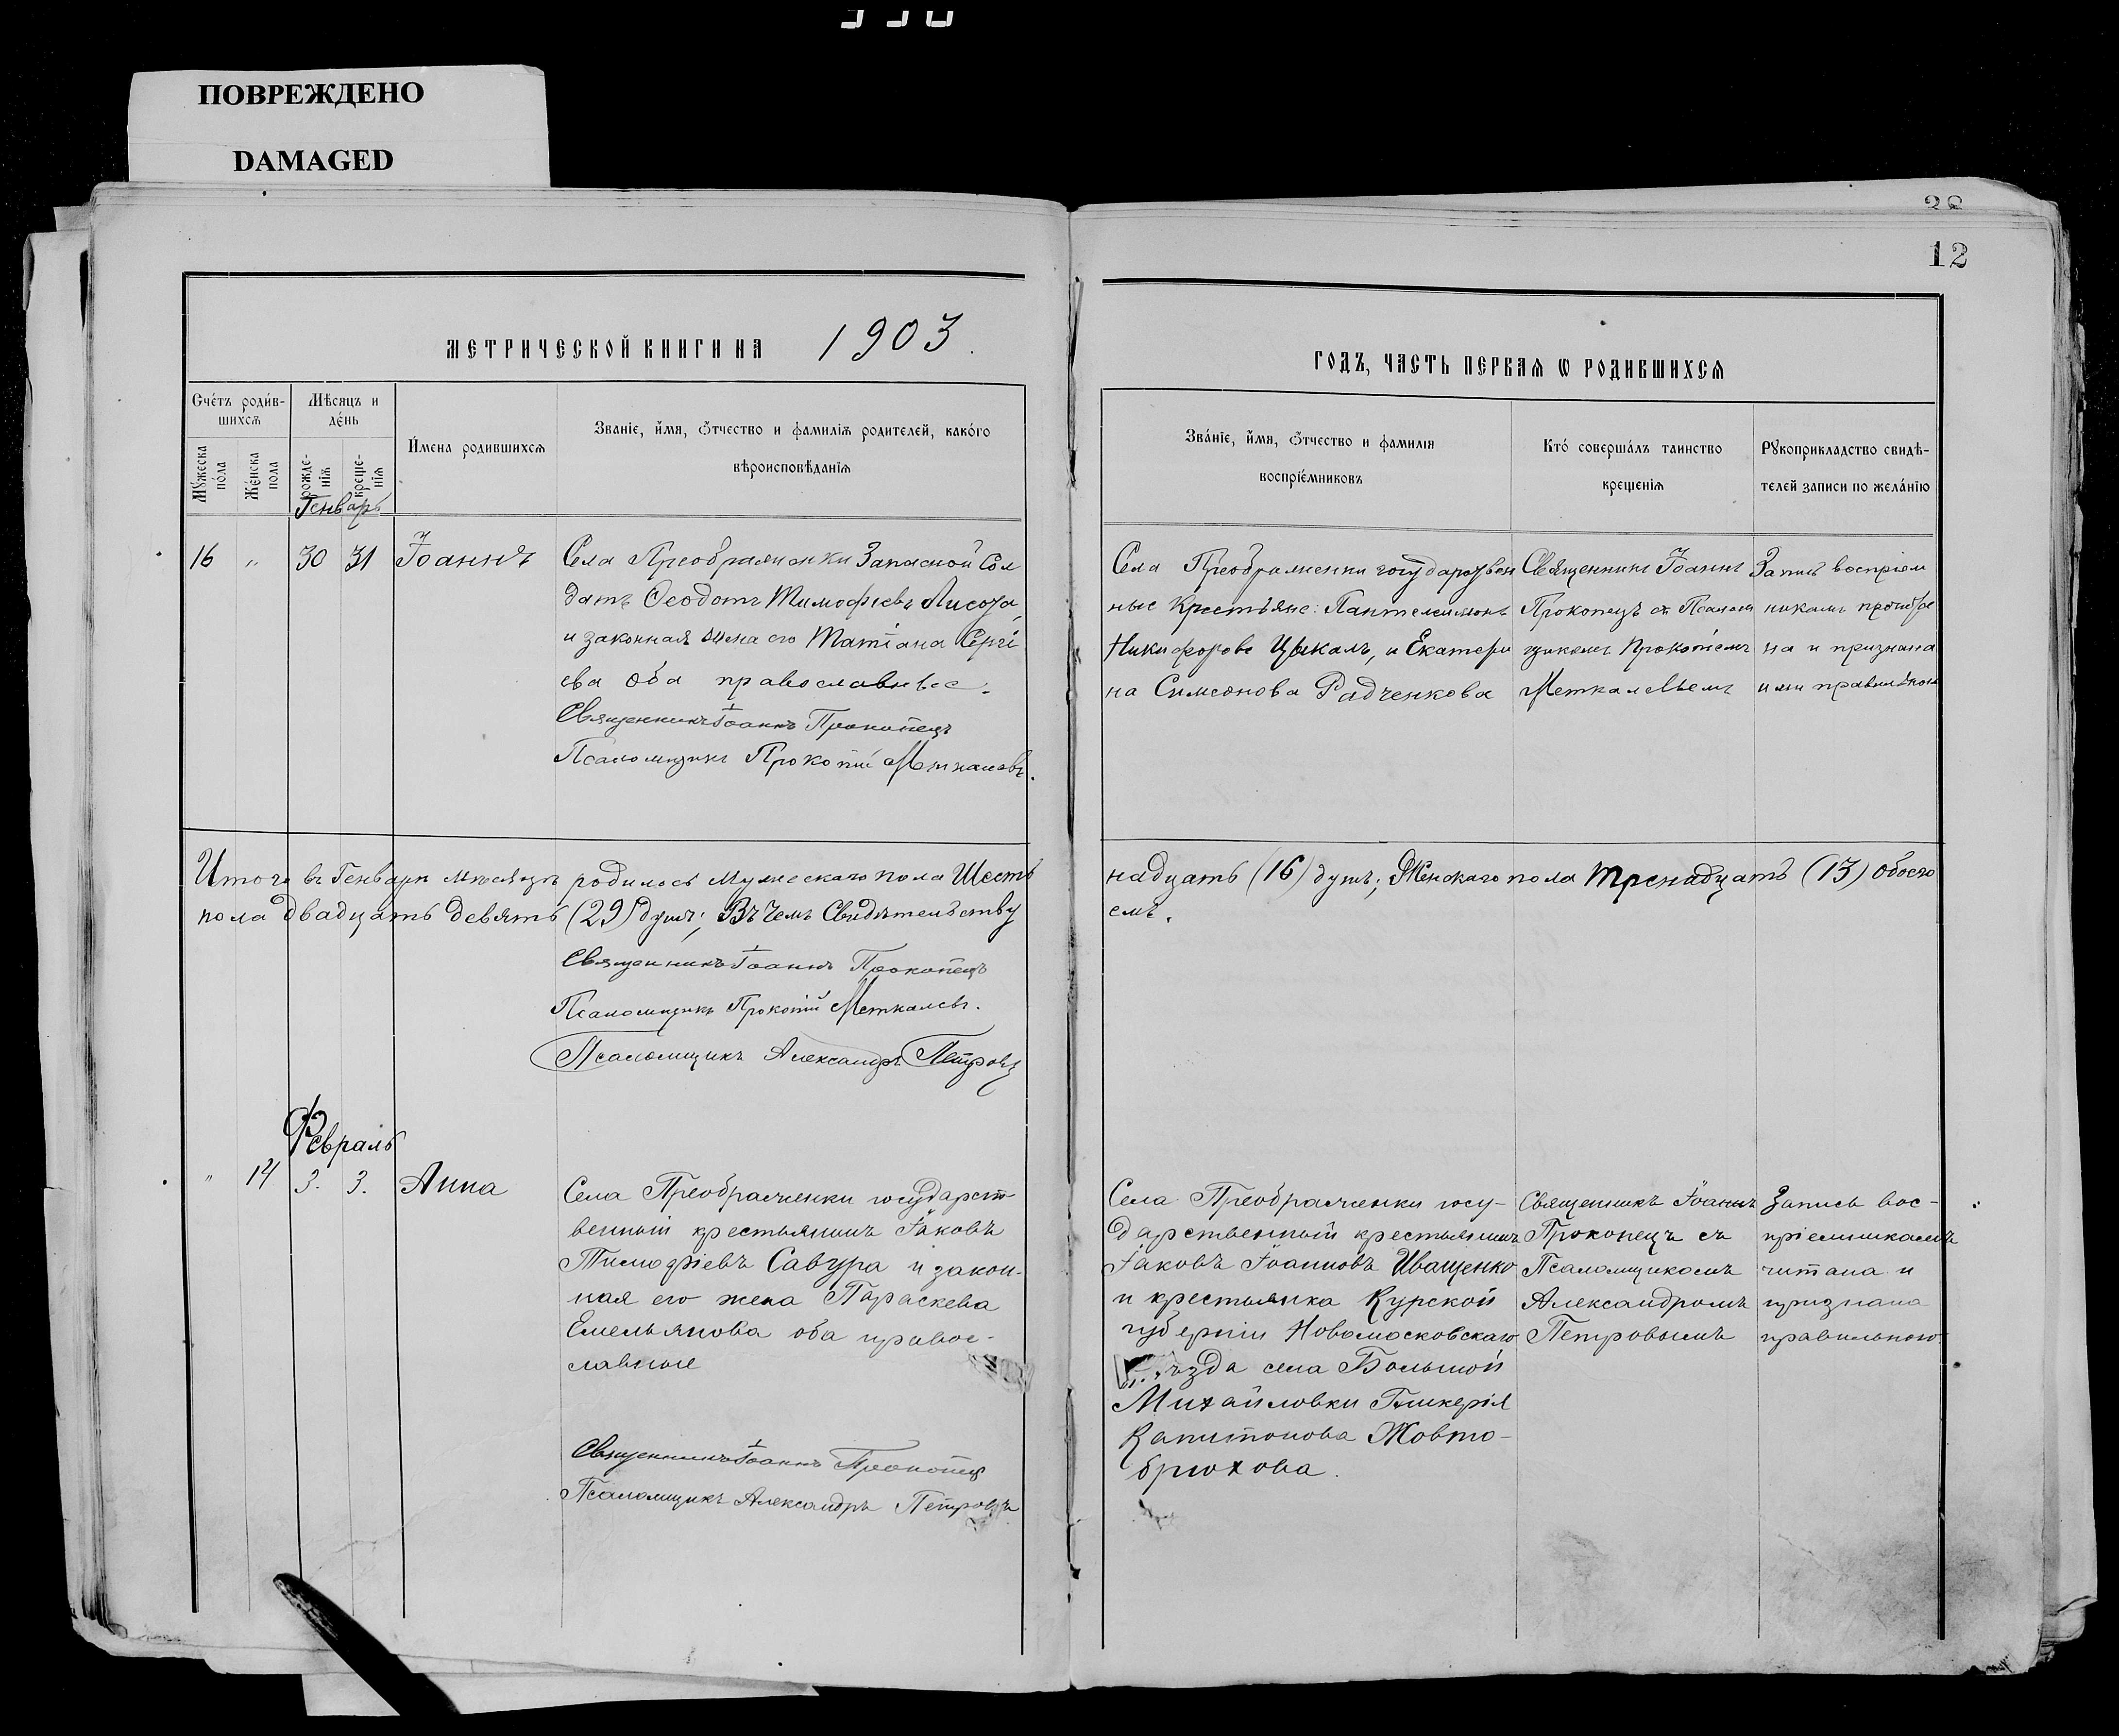 ПОВРЕЖДЕНО
DAMAGED
12
МЕТРИЧЕСКОЙ КНИГИ НА 1903.
ГОДЪ, ЧАСТЬ ПЕРВАЯ Ѡ РОДИВШИХСЯ
Счétъ родив-
шихся
Мѣсяцъ и
дéнь
Мýжеска пóла
Жéнска пола
рожде-
нія
креще-
нія
И́мена родившихся
Званіе, и́мя, ѻ́тчество и фамилія родителей, какóго
вѣроисповѣданія
Звáніе, и́мя, ѻ́тчество и фамилія
воспріéмниковъ
Ктó совершáлъ таинство
крещенія
Рꙋкоприкладство свидѣ-
телей записи по желáнію
Генварь
16 " 30 31 Іоаннъ
Села Преображенки Запасной Сол
датъ Ѳеодотъ Тимофѣевъ Лисота
и законная жена его Татіана Сергі
ева Оба православные.
Священникъ Іоаннъ Прокопецъ
Псаломщикъ Прокопій Меткалевъ.
Села Преображенки государствен
ные Крестьяне: Пантелеимонъ
Никифоровъ Цыкалъ, и Екатери
на Симеонова Радченкова
Священникъ Іоаннъ
Прокопецъ съ Псалом
щикомъ Прокопіемъ
Меткалевымъ
Запись воспріем
никамъ прочита
на и признана
ими правильною
Итого въ Генварѣ мѣсяцѣ родилось Мужескаго пола Шест
надцать (16) душъ; Женскаго пола Тренадцать (13) обоего
пола двадцать девять (29) душъ; Въ чемъ Свидѣтельству
емъ.
Священникъ Іоаннъ Прокопецъ
Псаломщикъ Прокопій Меткалевъ.
Псаломщикъ Александръ Петровъ
Февраль
" 14 3. 3. Анна
Села Преображенки государст-
венный крестьянинъ Іаковъ
Тимофіевъ Савура и закон-
ная его жена Параскева
Емельянова оба правос-
лавные
Священникъ Іоаннъ Прокопецъ
Псаломщикъ Александръ Петровъ
Села Преображенки госу-
дарственный крестьянинъ
Іаковъ Іоанновъ Иващенко
и крестьянка Курской
губерніи Новомосковскаго
ѣзда села Большой
Михайловки Гликерія
Капитонова Жовто-
брюхова.
Священникъ Іоаннъ
Прокопецъ съ
Псаломщикомъ
Александромъ
Петровымъ
Запись вос-
пріемникамъ
читана и
признана
правильною.